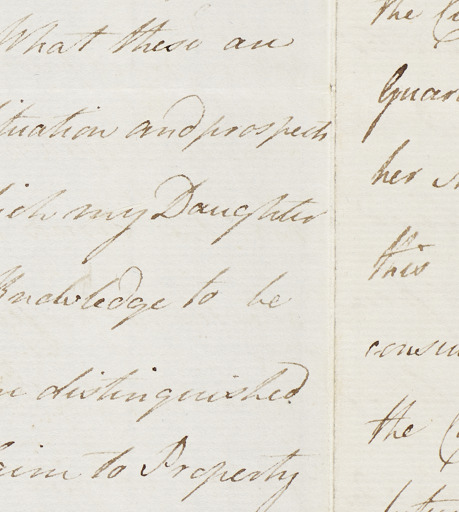 What these are
situation and prospects
which my Daughter
Knowledge to be
distinguished
to Property
the
her
this
the